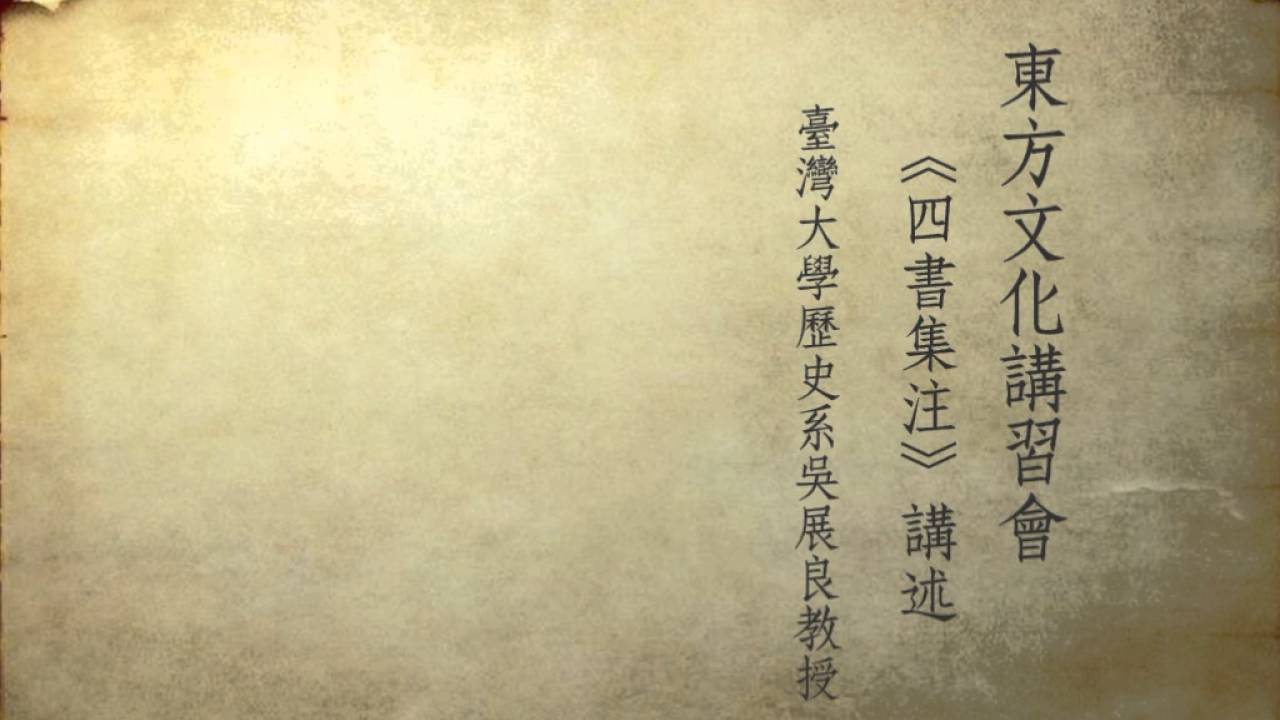 東方文化講習會
《四書集注》講述
臺灣大學歷史系吳展良教授